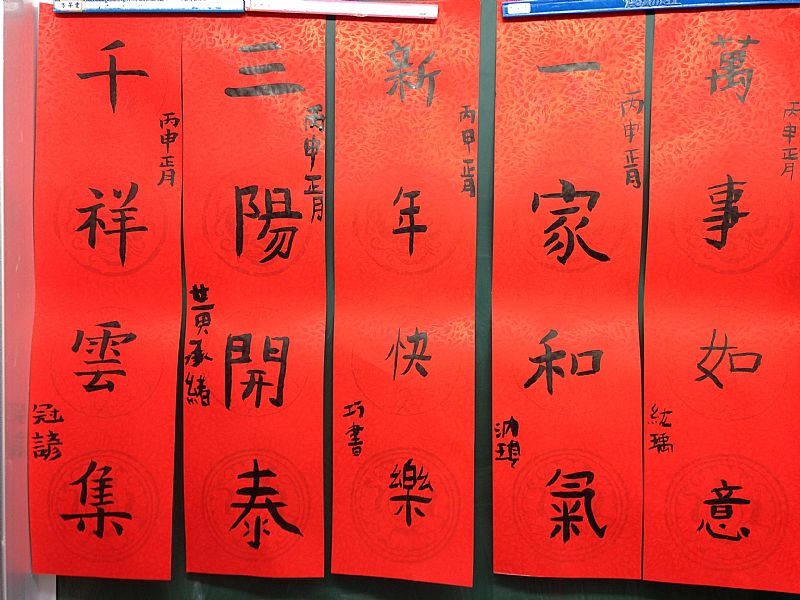 萬事如意
丙申正月
紘瑀
一家和氣
丙申正月
新年快樂
丙申正月
巧書
三陽開泰
丙申正月
黃承緒
千祥雲集
丙申正月
冠諺